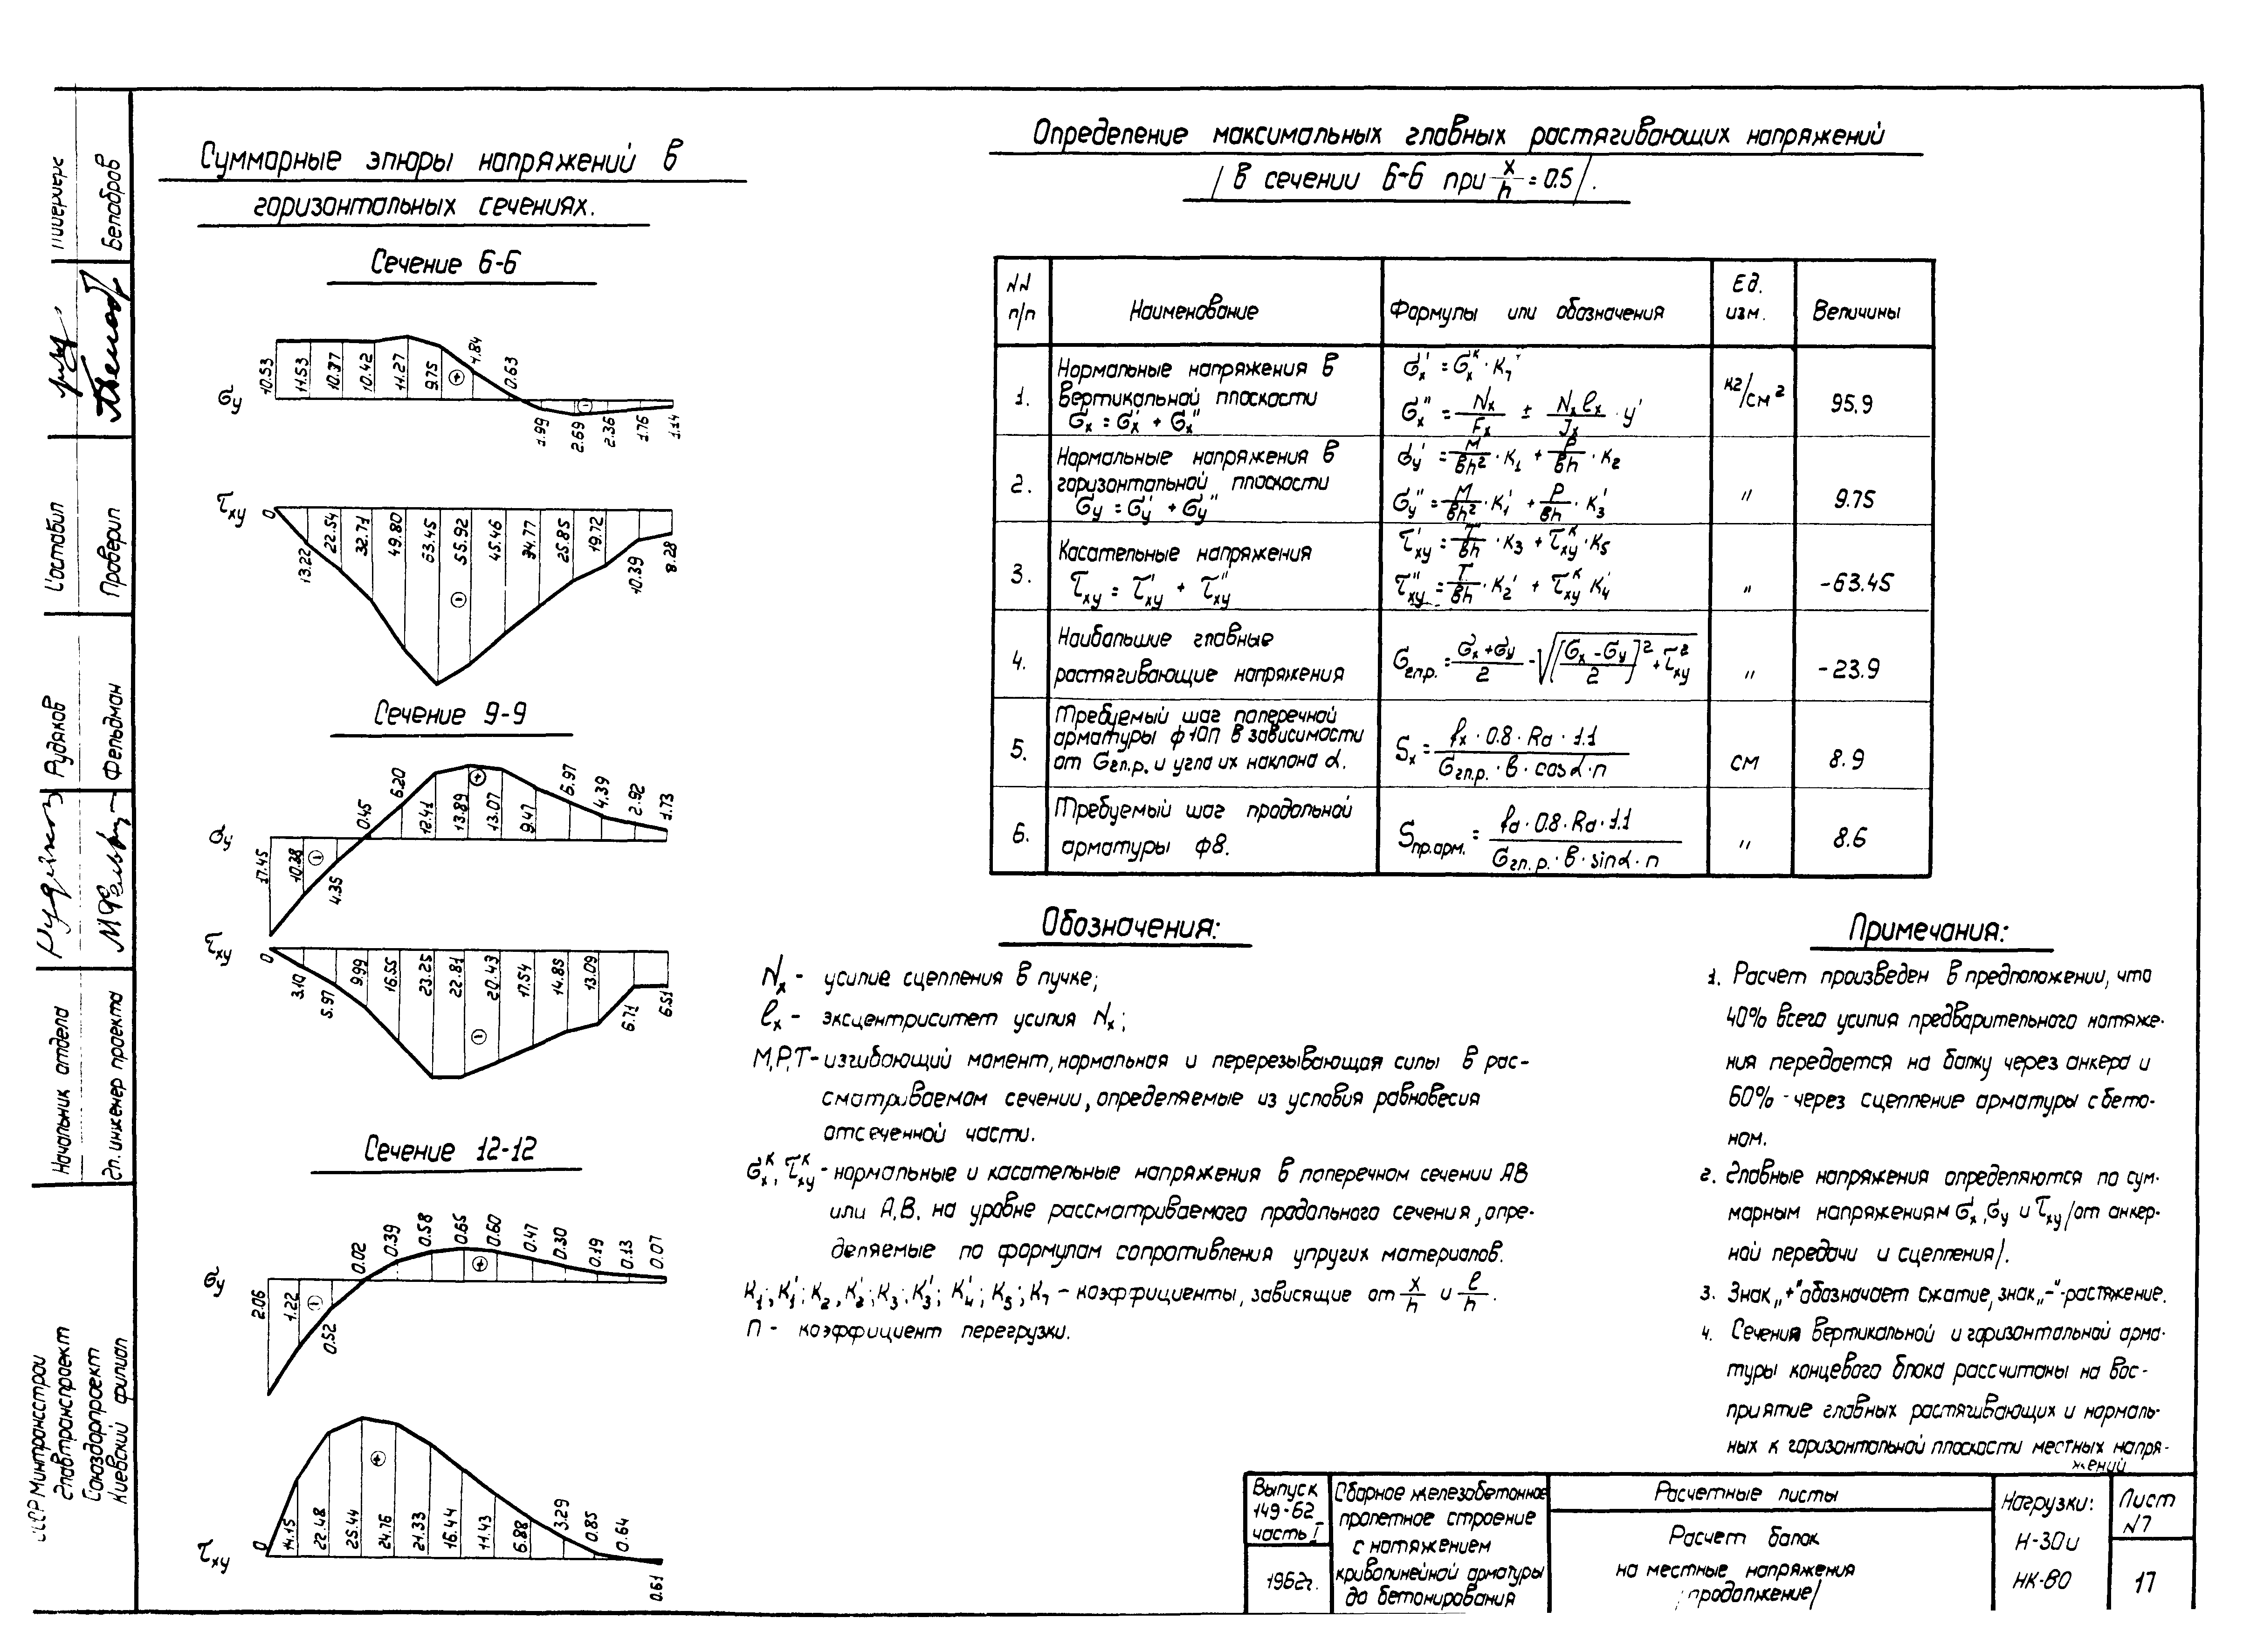 Суммарные эпюры напряжений в
горизонтальных сечениях.
Сечение 6-6
σy
10.53 11.53 10.37 10.42 11.27 9.75 + 4.84 0.63 1.99 - 2.69 2.36 1.76 1.14
τxy
0 13.22 22.54 32.71 49.80 63.45 - 55.92 45.46 34.77 25.85 19.72 10.39 8.28
Сечение 9-9
σy
17.45 10.38 - 4.35 0.45 6.20 12.41 13.89 + 13.07 9.47 6.97 4.39 2.92 1.73
τxy
0 3.10 5.97 9.99 16.55 23.25 22.81 - 20.43 17.54 14.85 13.09 6.71 6.51
Сечение 12-12
σy
2.06 1.22 - 0.52 0.02 0.39 0.58 0.65 + 0.60 0.47 0.30 0.19 0.13 0.07
τxy
0 14.15 22.48 25.44 + 24.76 21.33 16.44 11.43 6.88 3.29 0.85 0.64 0.61
Определение максимальных главных растягивающих напряжений
/в сечении 6-6 при x/h = 0.5/.
NN п/п | Наименование | Формулы или обозначения | Ед. изм. | Величины
1. | Нормальные напряжения в
вертикальной плоскости
σx = σx' + σx" | σx' = σx^к · K7
σx" = Nx/Fx ± Nx ex/Jx · y' | кг/см² | 95.9
2. | Нормальные напряжения в
горизонтальной плоскости
σy = σy' + σy" | σy' = M/вh² · K1 + P/вh · K2
σy" = M/вh² · K1' + P/вh · K3' | " | 9.75
3. | Касательные напряжения
τxy = τxy' + τxy" | τxy' = T/вh · K3 + τxy^к · K5
τxy" = T/вh · K2' + τxy^к K4' | " | -63.45
4. | Наибольшие главные
растягивающие напряжения | σгл.р. = (σx + σy)/2 - √([(σx - σy)/2]² + τ²xy) | " | -23.9
5. | Требуемый шаг поперечной
арматуры ф10П в зависимости
от σгл.р. и угла их наклона α. | Sx = fx · 0.8 · Ra · 1.1 / σгл.р. · в · cosα · n | см | 8.9
6. | Требуемый шаг продольной
арматуры ф8. | Sпр.арм. = fa · 0.8 · Ra · 1.1 / σгл.р. · в · sinα · n | " | 8.6
Обозначения:
Nx - усилие сцепления в пучке;
ex - эксцентриситет усилия Nx;
M,P,T - изгибающий момент, нормальная и перерезывающая силы в рас-
сматриваемом сечении, определяемые из условия равновесия
отсеченной части.
σx^к, τxy^к - нормальные и касательные напряжения в поперечном сечении АВ
или А,В, на уровне рассматриваемого продольного сечения, опре-
деляемые по формулам сопротивления упругих материалов.
K1; K1'; K2, K2'; K3; K3'; K4'; K5; K7 - коэффициенты, зависящие от x/h и e/h.
n - коэффициент перегрузки.
Примечания:
1. Расчет произведен в предположении, что
40% всего усилия предварительного натяже-
ния передается на балку через анкера и
60% - через сцепление арматуры с бето-
ном.
2. Главные напряжения определяются по сум-
марным напряжениям σx, σy и τxy /от анкер-
ной передачи и сцепления/.
3. Знак „+" обозначает сжатие, знак „-" - растяжение.
4. Сечения вертикальной и горизонтальной арма-
туры концевого блока рассчитаны на вос-
приятие главных растягивающих и нормаль-
ных к горизонтальной плоскости местных напря-
жений
Выпуск
149-62
часть I
1962г.
Сборное железобетонное
пролетное строение
с натяжением
криволинейной арматуры
до бетонирования
Расчетные листы
Расчет балок
на местные напряжения
/продолжение/
Нагрузки:
Н-30 и
НК-80
Лист
N7
17
Инженер
Белобров
Составил
Проверил
Рудяков
Фельдман
Начальник отдела
Гл. инженер проекта
Минтрансстрой
Главтранспроект
Союздорпроект
Киевский филиал